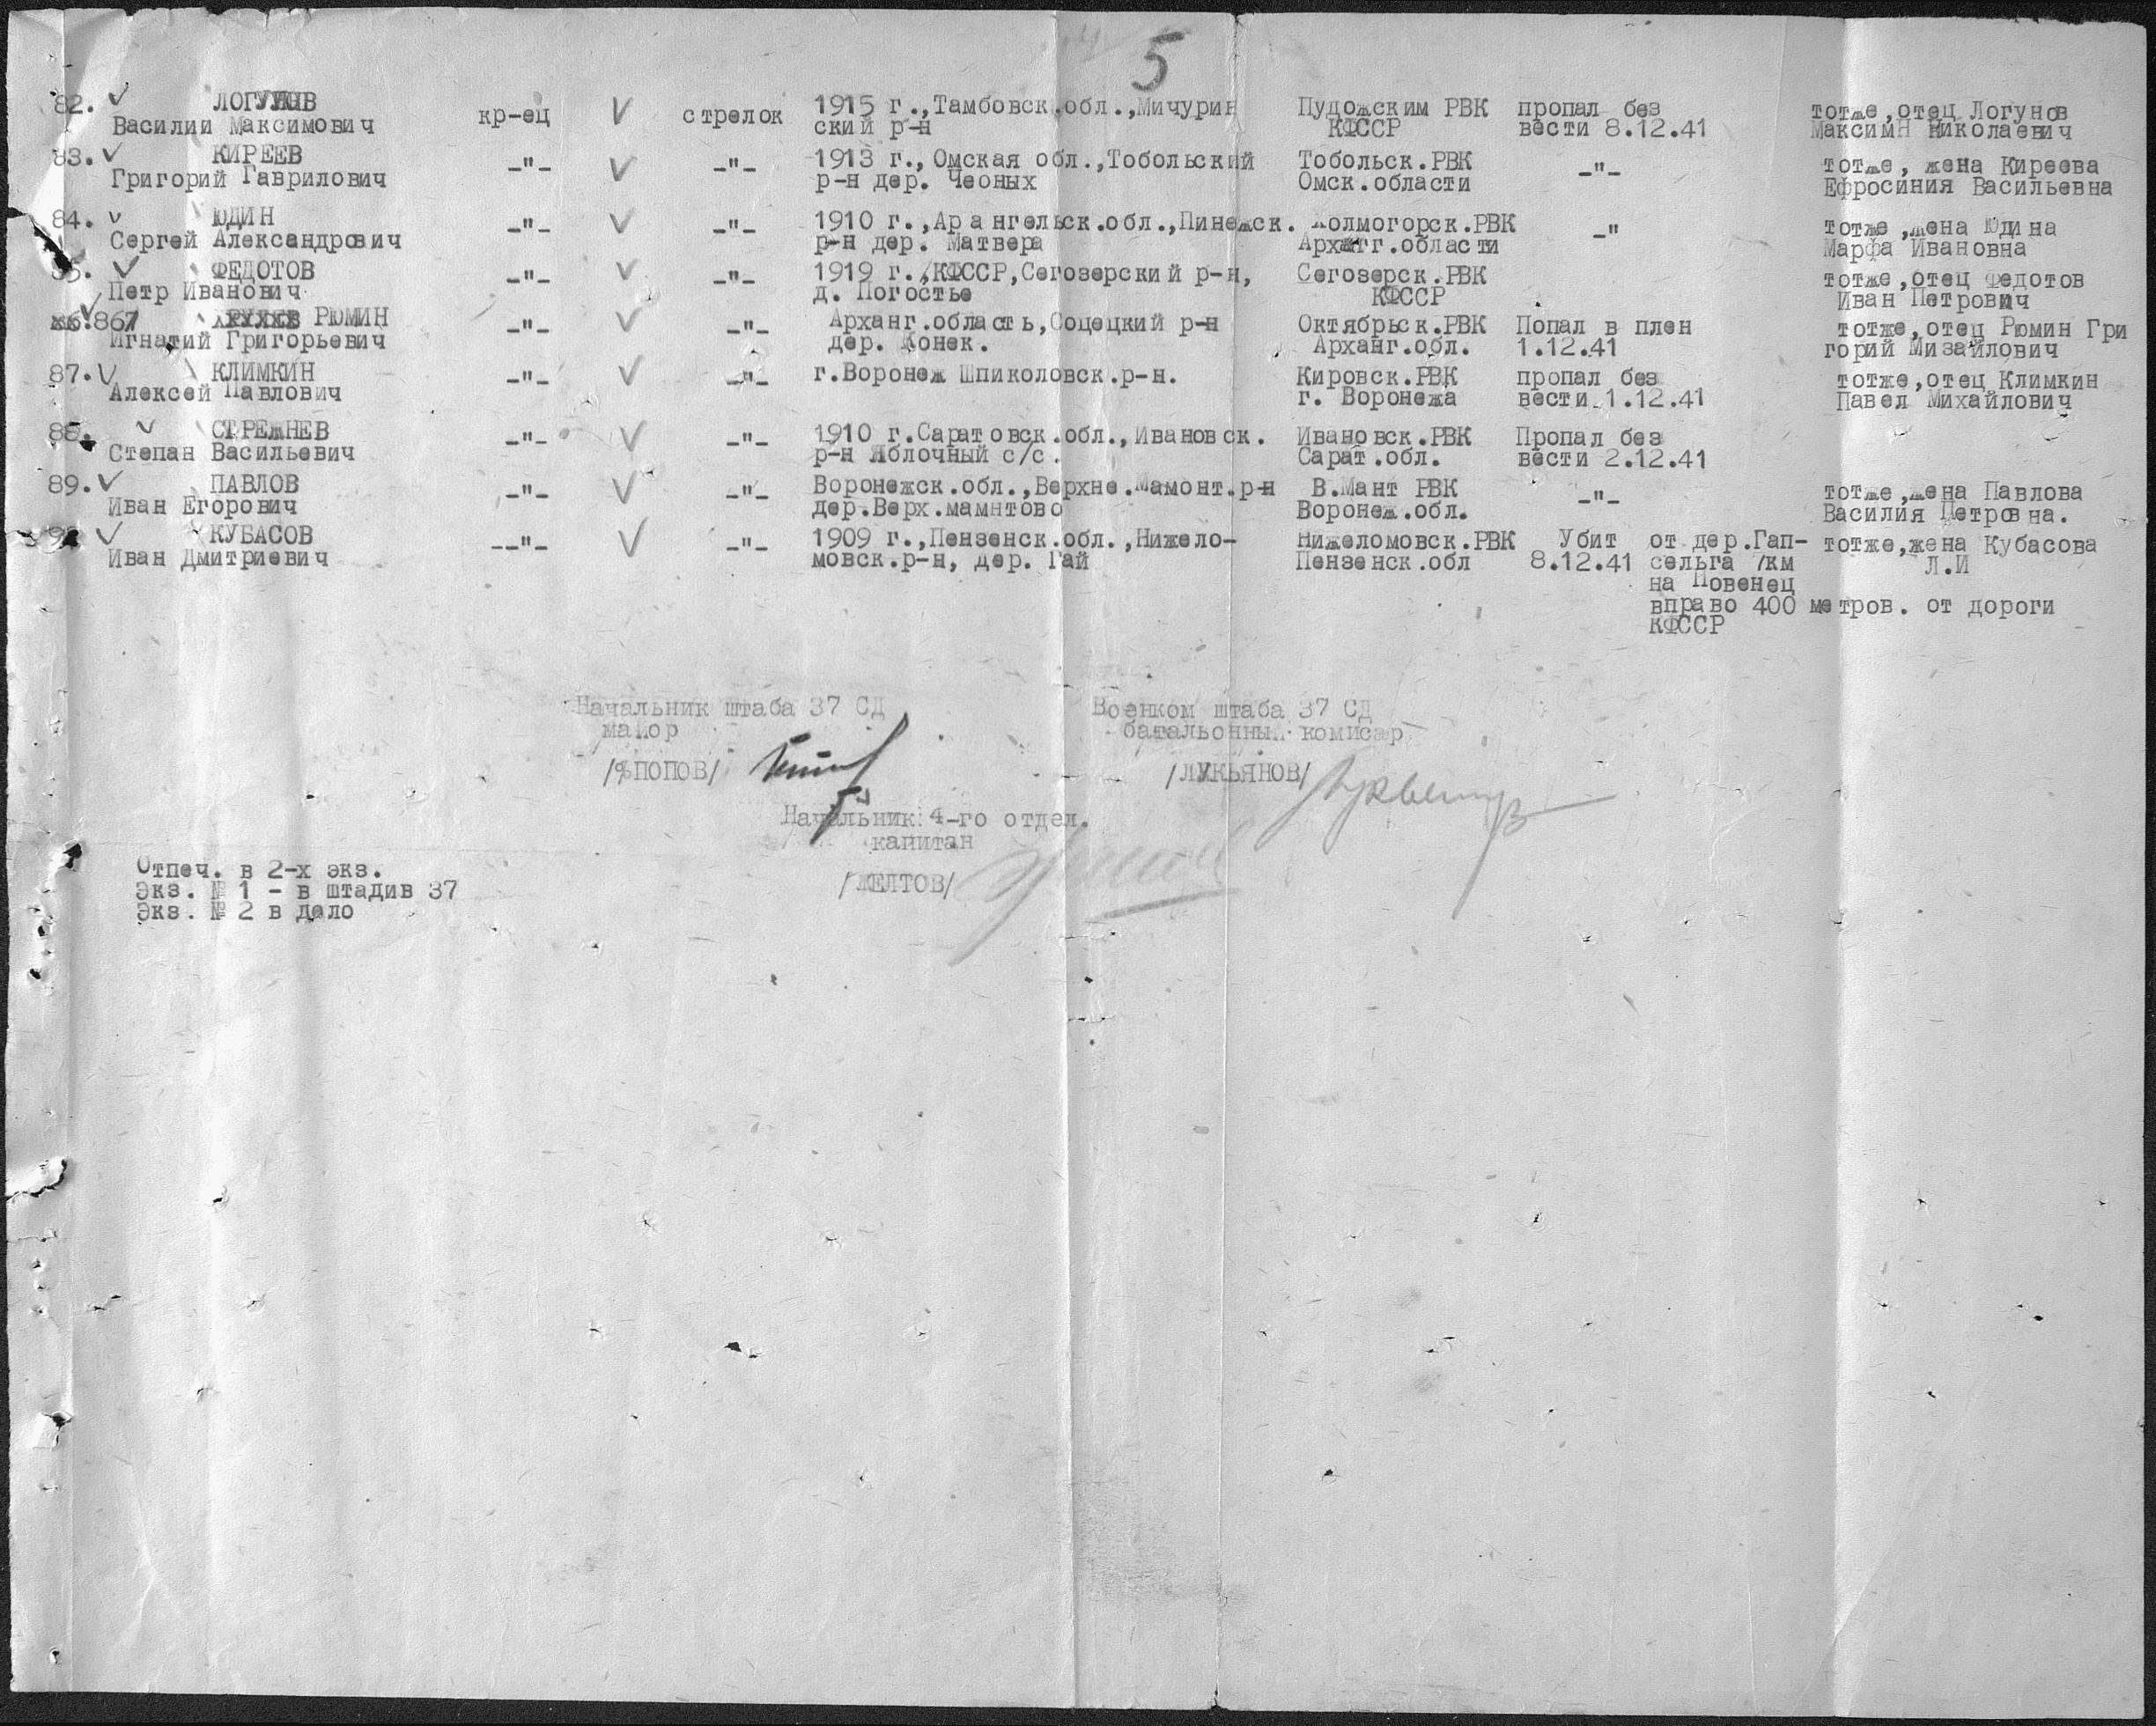 5
82. ЛОГУНОВ кр-ец стрелок 1915 г.,Тамбовск.обл.,Мичурин Пудожским РВК пропал без тотже,отец Логунов
Василии Максимович ский р-н КФССР вести 8.12.41 Максимн Николаевич
83. КИРЕЕВ -"- -"- 1913 г., Омская обл.,Тобольский Тобольск.РВК -"- тотже, жена Киреева
Григорий Гаврилович р-н дер. Чеоных Омск.области Ефросиния Васильевна
84. ЮДИН -"- -"- 1910 г.,Арангельск.обл.,Пинежск. Холмогорск.РВК -" тотже,жена Юдина
Сергей Александрович р-н дер. Матвера области Марфа Ивановна
85. ФЕДОТОВ -"- -"- 1919 г.,КФССР,Сегозерский р-н, Сегозерск.РВК тотже,отец Федотов
Петр Иванович д. Погостье КФССР Иван Петрович
86 РЮМИН -"- -"- Арханг.область,Соцецкий р-н Октябрьск.РВК Попал в плен тотже,отец Рюмин Гри
Игнатий Григорьевич дер. Конек. Арханг.обл. 1.12.41 горий Мизайлович
87. КЛИМКИН -"- -"- г.Воронеж Шпиколовск.р-н. Кировск.РВК пропал без тотже,отец Климкин
Алексей Павлович г. Воронежа вести 1.12.41 Павел Михайлович
88. СТРЕЖНЕВ -"- -"- 1910 г.Саратовск.обл.,Ивановск. Ивановск.РВК Пропал без
Степан Васильевич р-н Яблочный с/с. Сарат.обл. вести 2.12.41
89. ПАВЛОВ -"- -"- Воронежск.обл.,Верхне.Мамонт.р-н В.Мант РВК -"- тотже,жена Павлова
Иван Егорович дер.Верх.мамнтово Воронеж.обл. Василия Петровна.
90 КУБАСОВ --"- -"- 1909 г.,Пензенск.обл.,Нижело- Нижеломовск.РВК Убит от дер.Гап- тотже,жена Кубасова
Иван Дмитриевич мовск.р-н, дер. Гай Пензенск.обл 8.12.41 сельга 7км Л.И
на Повенец
вправо 400 метров. от дороги
КФССР
Начальник штаба 37 СД Военком штаба 37 СД
майор батальонный комисар
/ПОПОВ/ /ЛУКЬЯНОВ/
Начальник 4-го отдел.
капитан
/ЖЕЛТОВ/
Отпеч. в 2-х экз.
Экз. № 1 - в штадив 37
Экз. № 2 в дело